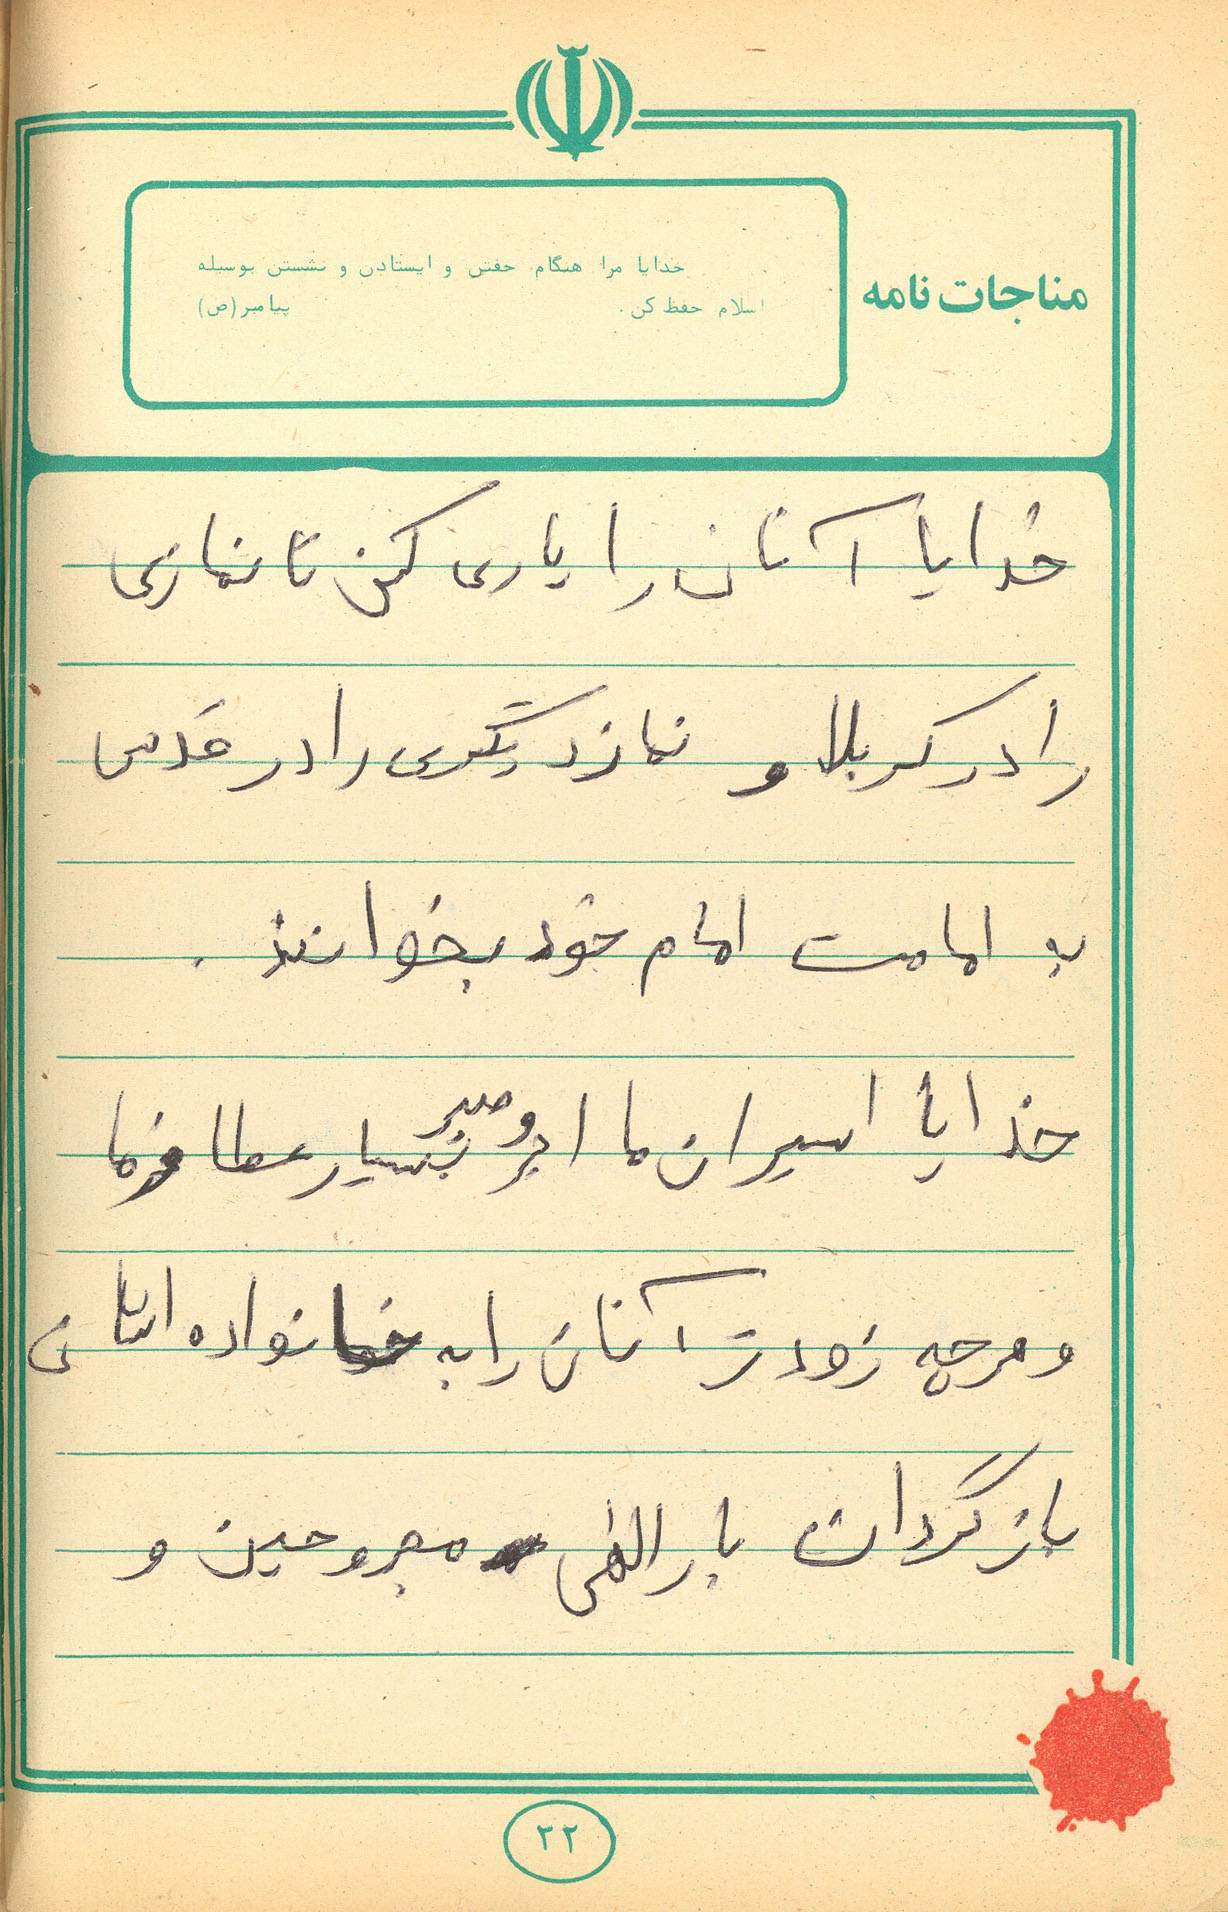 مناجات نامه
خدایا مرا هنگام خفتن و ایستادن و نشستن بوسیله
اسلام حفظ کن. پیامبر(ص)
خدایا آنان را یاری کن تا نمازی
را در کربلا و نماز دیگری را در قدس
به امامت امام خود بخوانند.
خدایا اسیران ما اجر و صبر بسیار عطا فرما
و هرچه زودتر آنان را به خانواده اشان
بازگردان بار الهی مجروحین و
۲۲